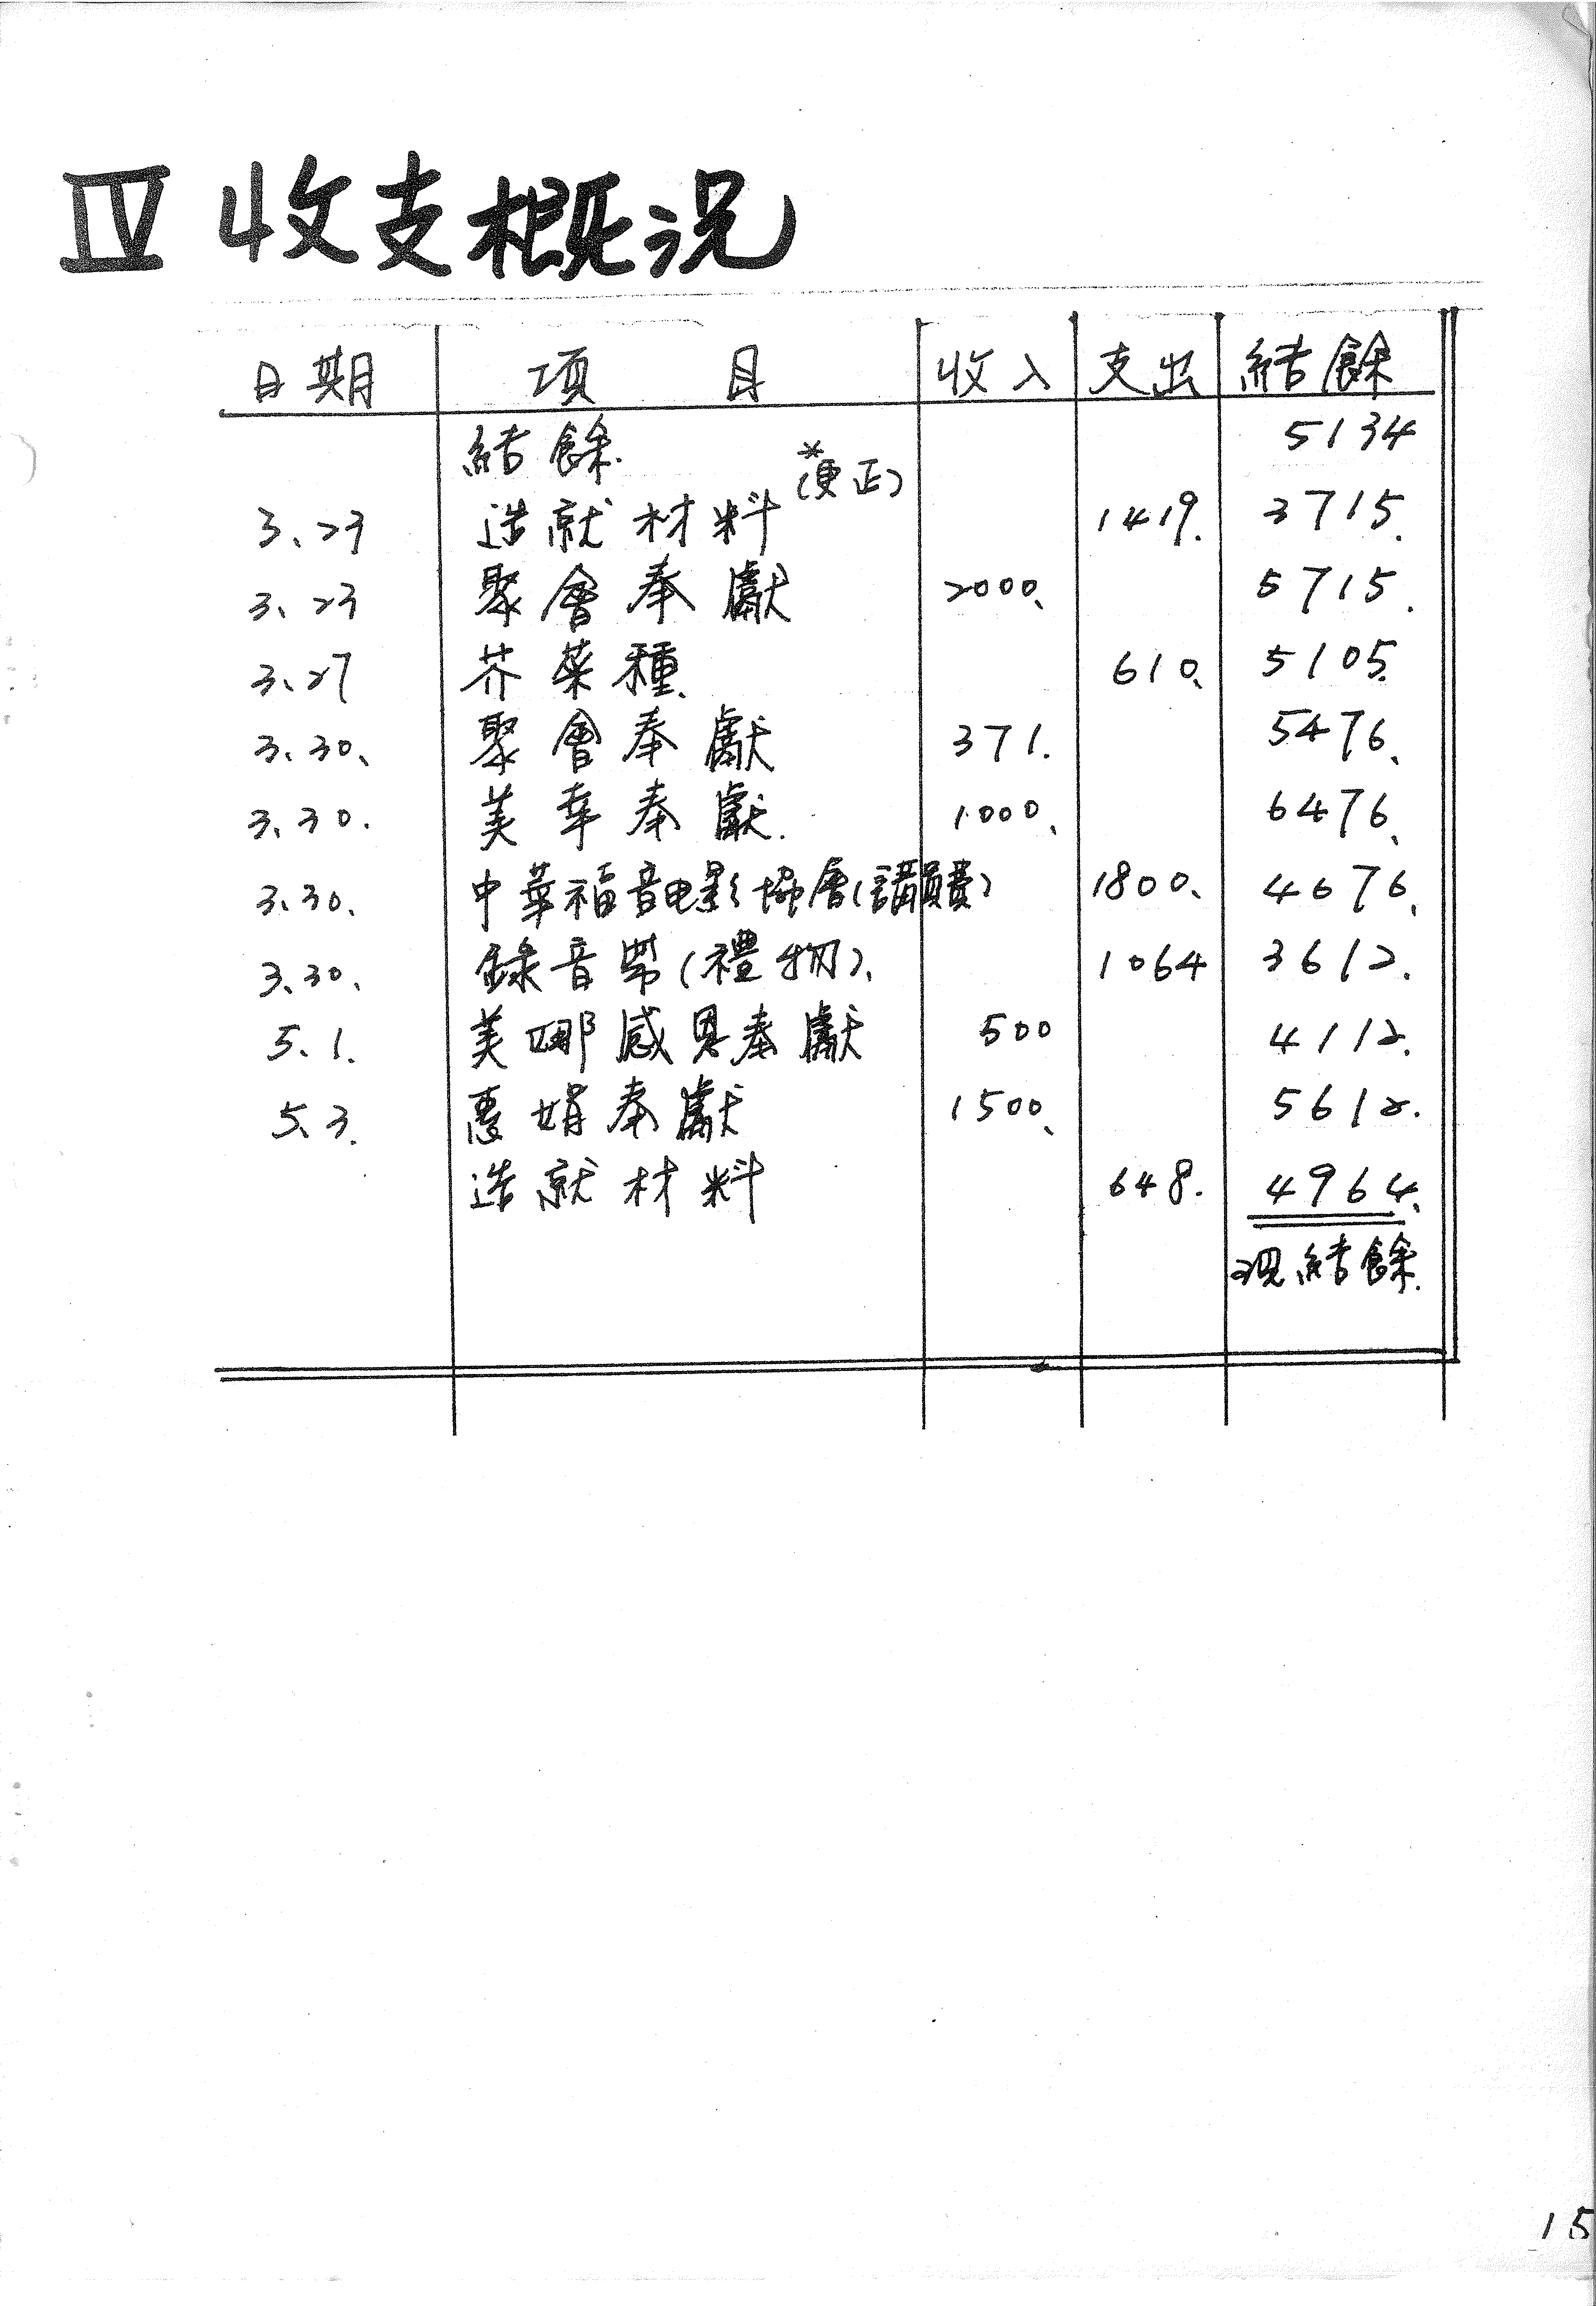 IV 收支概況
日期 項目 收入 支出 結餘
結餘. 5134
*(更正)
3、23 造就材料 1419. 3715.
3、23 聚會奉獻 2000、 5715.
3、27 芥菜種、 610、 5105.
3、30、 聚會奉獻 371. 5476、
3、30. 美幸奉獻. 1000、 6476、
3.30、 中華福音电影協會(講員費) 1800、 4676、
3、30、 錄音帶(禮物)、 1064 3612.
5、1. 美娜感恩奉獻 500 4112.
5、3. 惠娟奉獻 1500、 5612.
造就材料 648. 4964、
現結餘.
15